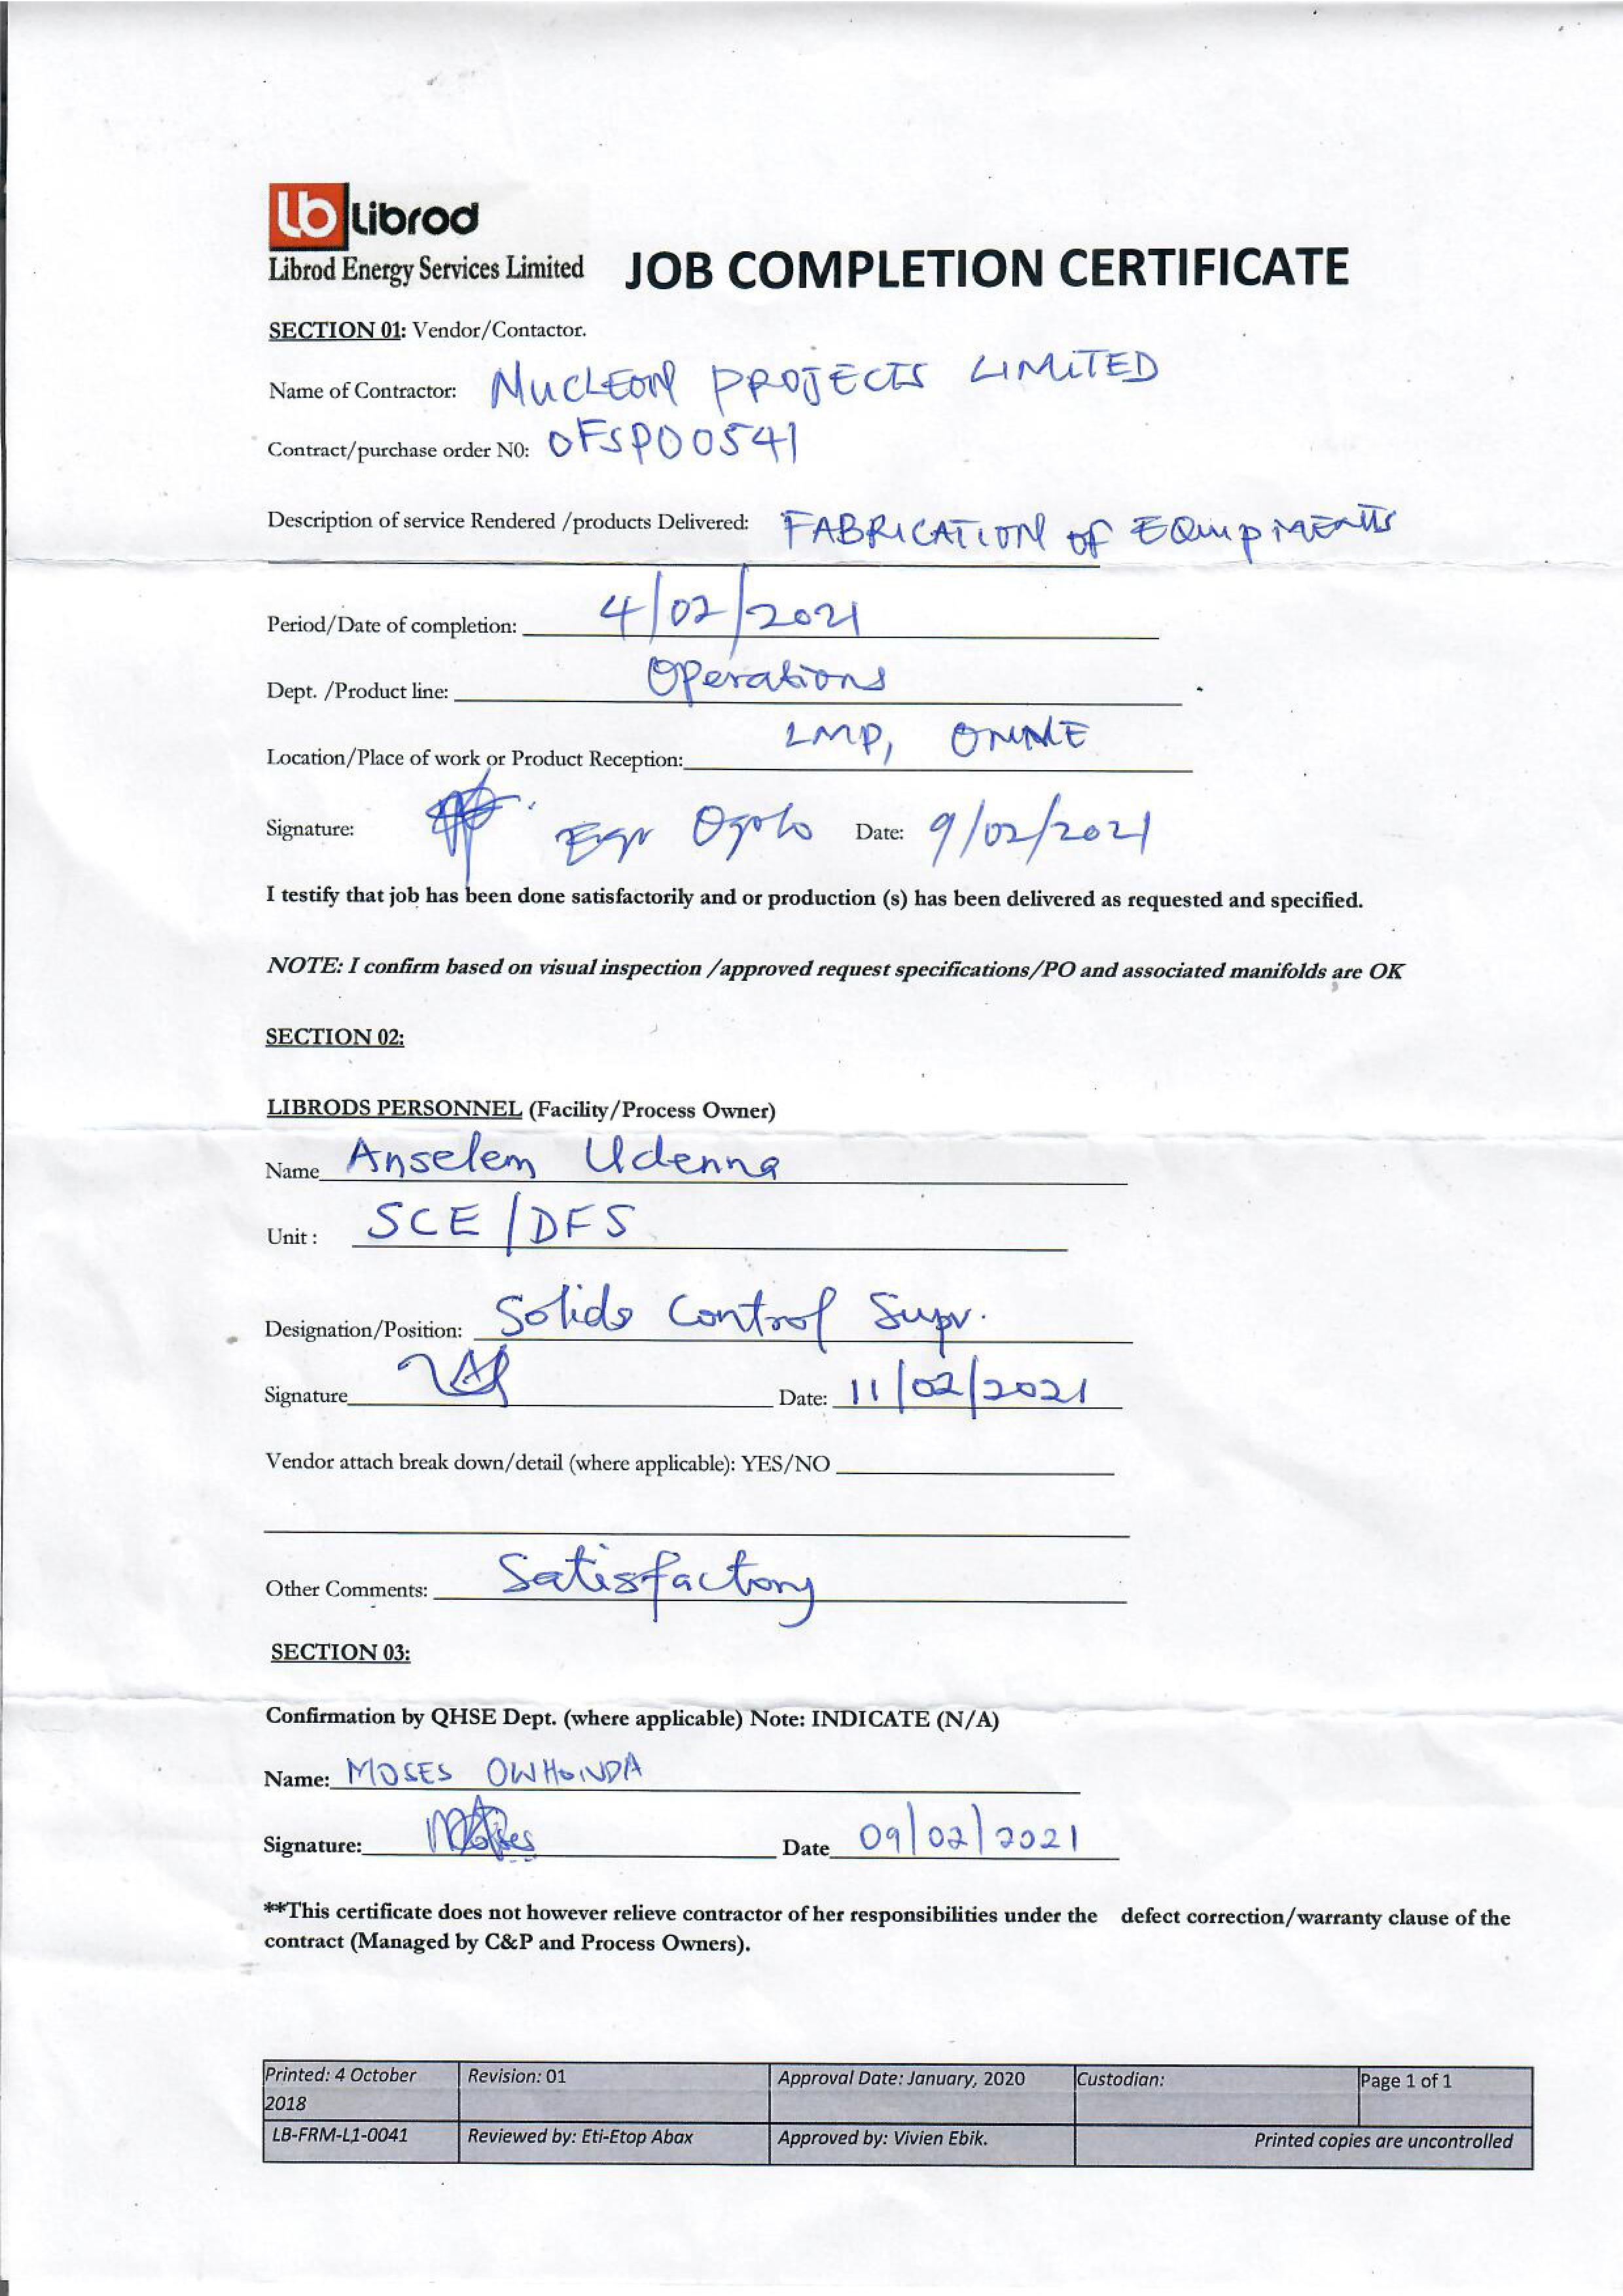 lb Librod
Librod Energy Services Limited JOB COMPLETION CERTIFICATE
SECTION 01: Vendor/Contactor.
Name of Contractor: NUCLEON PROJECTS LIMITED
Contract/purchase order N0: OFSPO0541
Description of service Rendered /products Delivered: FABRICATION OF EQUIPMENTS
Period/Date of completion: 4/02/2021
Dept. /Product line: Operations
Location/Place of work or Product Reception: LMP, ONNE
Signature: Egr Ogolo Date: 9/02/2021
I testify that job has been done satisfactorily and or production (s) has been delivered as requested and specified.
NOTE: I confirm based on visual inspection /approved request specifications/PO and associated manifolds are OK
SECTION 02:
LIBRODS PERSONNEL (Facility/Process Owner)
Name Anselem Udenna
Unit : SCE/DFS
Designation/Position: Solids Control Supv.
Signature Date: 11/02/2021
Vendor attach break down/detail (where applicable): YES/NO
Other Comments: Satisfactory
SECTION 03:
Confirmation by QHSE Dept. (where applicable) Note: INDICATE (N/A)
Name: MOSES OWHONDA
Signature: Date 09/02/2021
**This certificate does not however relieve contractor of her responsibilities under the defect correction/warranty clause of the
contract (Managed by C&P and Process Owners).
Printed: 4 October 2018 Revision: 01 Approval Date: January, 2020 Custodian: Page 1 of 1
LB-FRM-L1-0041 Reviewed by: Eti-Etop Abax Approved by: Vivien Ebik. Printed copies are uncontrolled